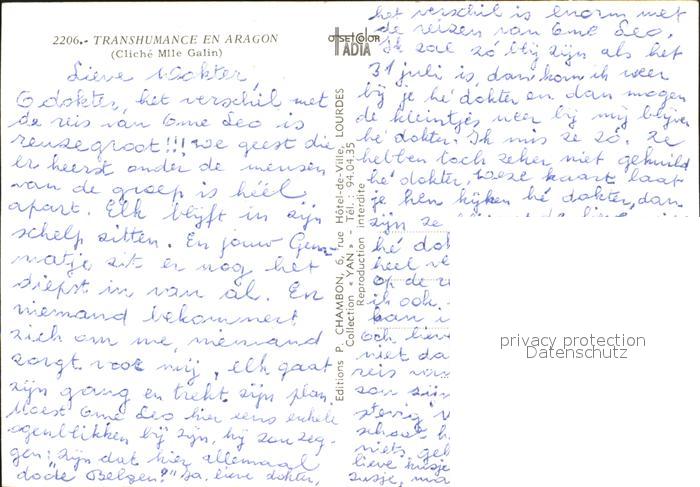 2206.- TRANSHUMANCE EN ARAGON
(Cliché Mlle Galin)
OFFSET COLOR
IADIA
Lieve dokter,
O dokter, het verschil met
de reis van Ome Leo is
reuzegroot!!! De geest die
er heerst onder de mensen
van de groep is héél
apart. Elk blijft in zijn
schelp zitten. En jouw
zit er nog het
diepst in van al. En
niemand bekommert
zich om me, niemand
zorgt voor mij, elk gaat
zijn gang en trekt zijn plan.
Moest Ome Leo hier eens enkele
ogenblikken bij zijn, hij zou zeg-
gen: "zijn dat hier allemaal
dode Belgen?" Ja, lieve dokter,
Editions P. CHAMBON, 6, rue Hôtel-de-Ville, LOURDES
Collection « YAN » - Tél. : 94.04.35
Reproduction interdite
het verschil is enorm met
de reizen van Ome Leo.
Ik zal zó blij zijn als het
31 juli is, dan kom ik weer
bij je hé dokter en dan mogen
de kleintjes weer bij mij blijven
hé dokter. Ik mis ze zó. Ze
hebben toch zeker niet gehuild
hé dokter, deze kaart laat
je hen kijken hé dokter, dan
zijn ze
hé dok
heel ve
op de
ik ook.
kan i
och lieve
niet da
reis va
zou zijn
stevig
schoot h
niets, gel
lieve kusje
zusje, ma
privacy protection
Datenschutz